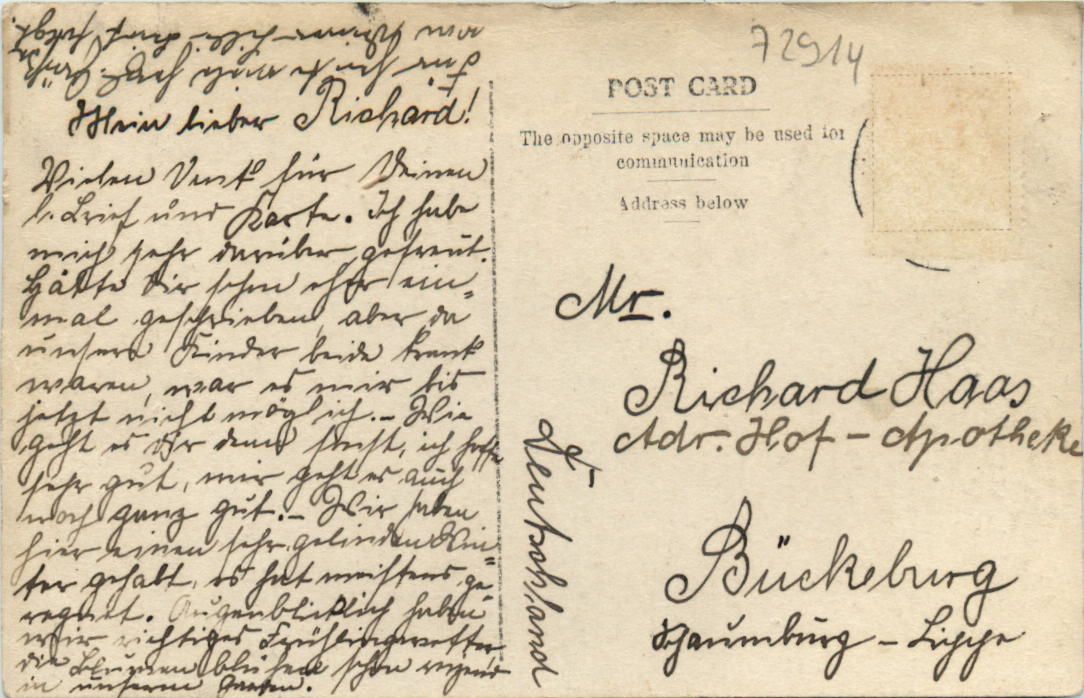 Mein lieber Richard!
Vielen Dank für Deinen
l. Brief und Karte. Ich habe
mich sehr darüber gefreut.
Hätte Dir schon eher ein=
mal geschrieben, aber da
unsere Kinder beide krank
waren, war es mir bis
jetzt nicht möglich. – Wie
geht es Dir denn sonst, ich hoffe
sehr gut, mir geht es auch
noch ganz gut. – Wir haben
hier einen sehr gelinden Win=
ter gehabt, es hat meistens ge=
regnet. Augenblicklich haben
wir richtiges Frühlingswetter
die Blumen blühen schon
in unserm Garten.
72914
POST CARD
The opposite space may be used for
communication
Address below
Mr.
Richard Haas
Adr. Hof – Apotheke
Bückeburg
Schaumburg – Lippe
Deutschland